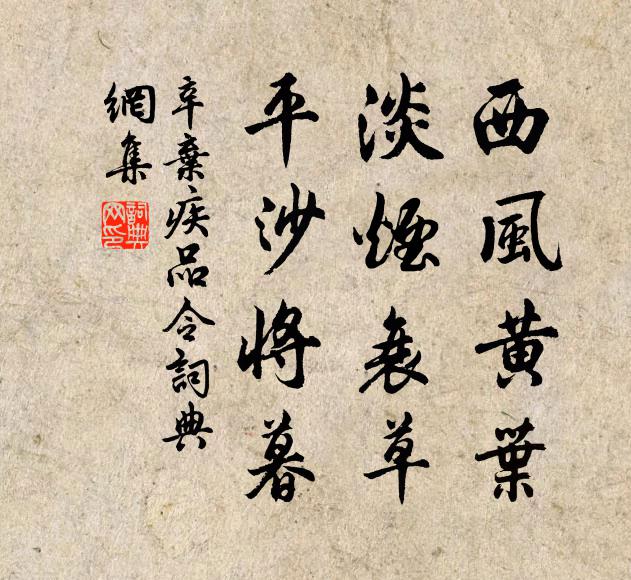 西風黄葉
淡煙衰草
平沙將暮
辛棄疾品令詞典
網集
詞典網印